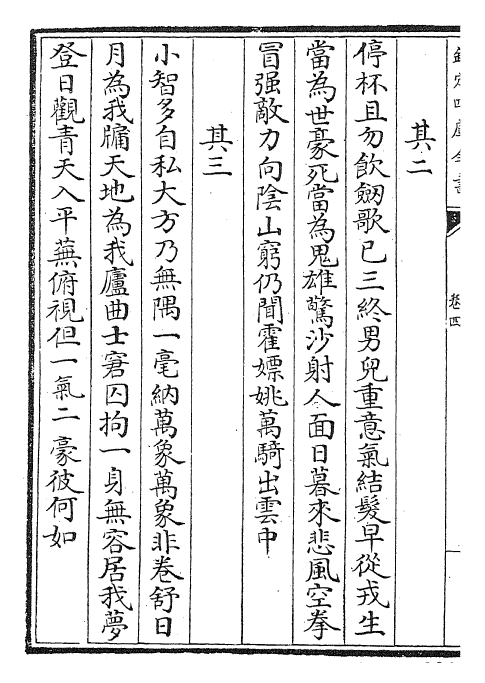 欽定四庫全書
卷四
其二
停杯且勿飲劒歌已三終男兒重意氣結髮早從戎生
當為世豪死當為鬼雄驚沙射人面日暮來悲風空拳
冒强敵力向陰山窮仍聞霍嫖姚萬騎出雲中
其三
小智多自私大方乃無隅一毫納萬象萬象非卷舒日
月為我牖天地為我廬曲士窘囚拘一身無容居我夢
登日觀青天入平蕪俯視但一氣二豪彼何如